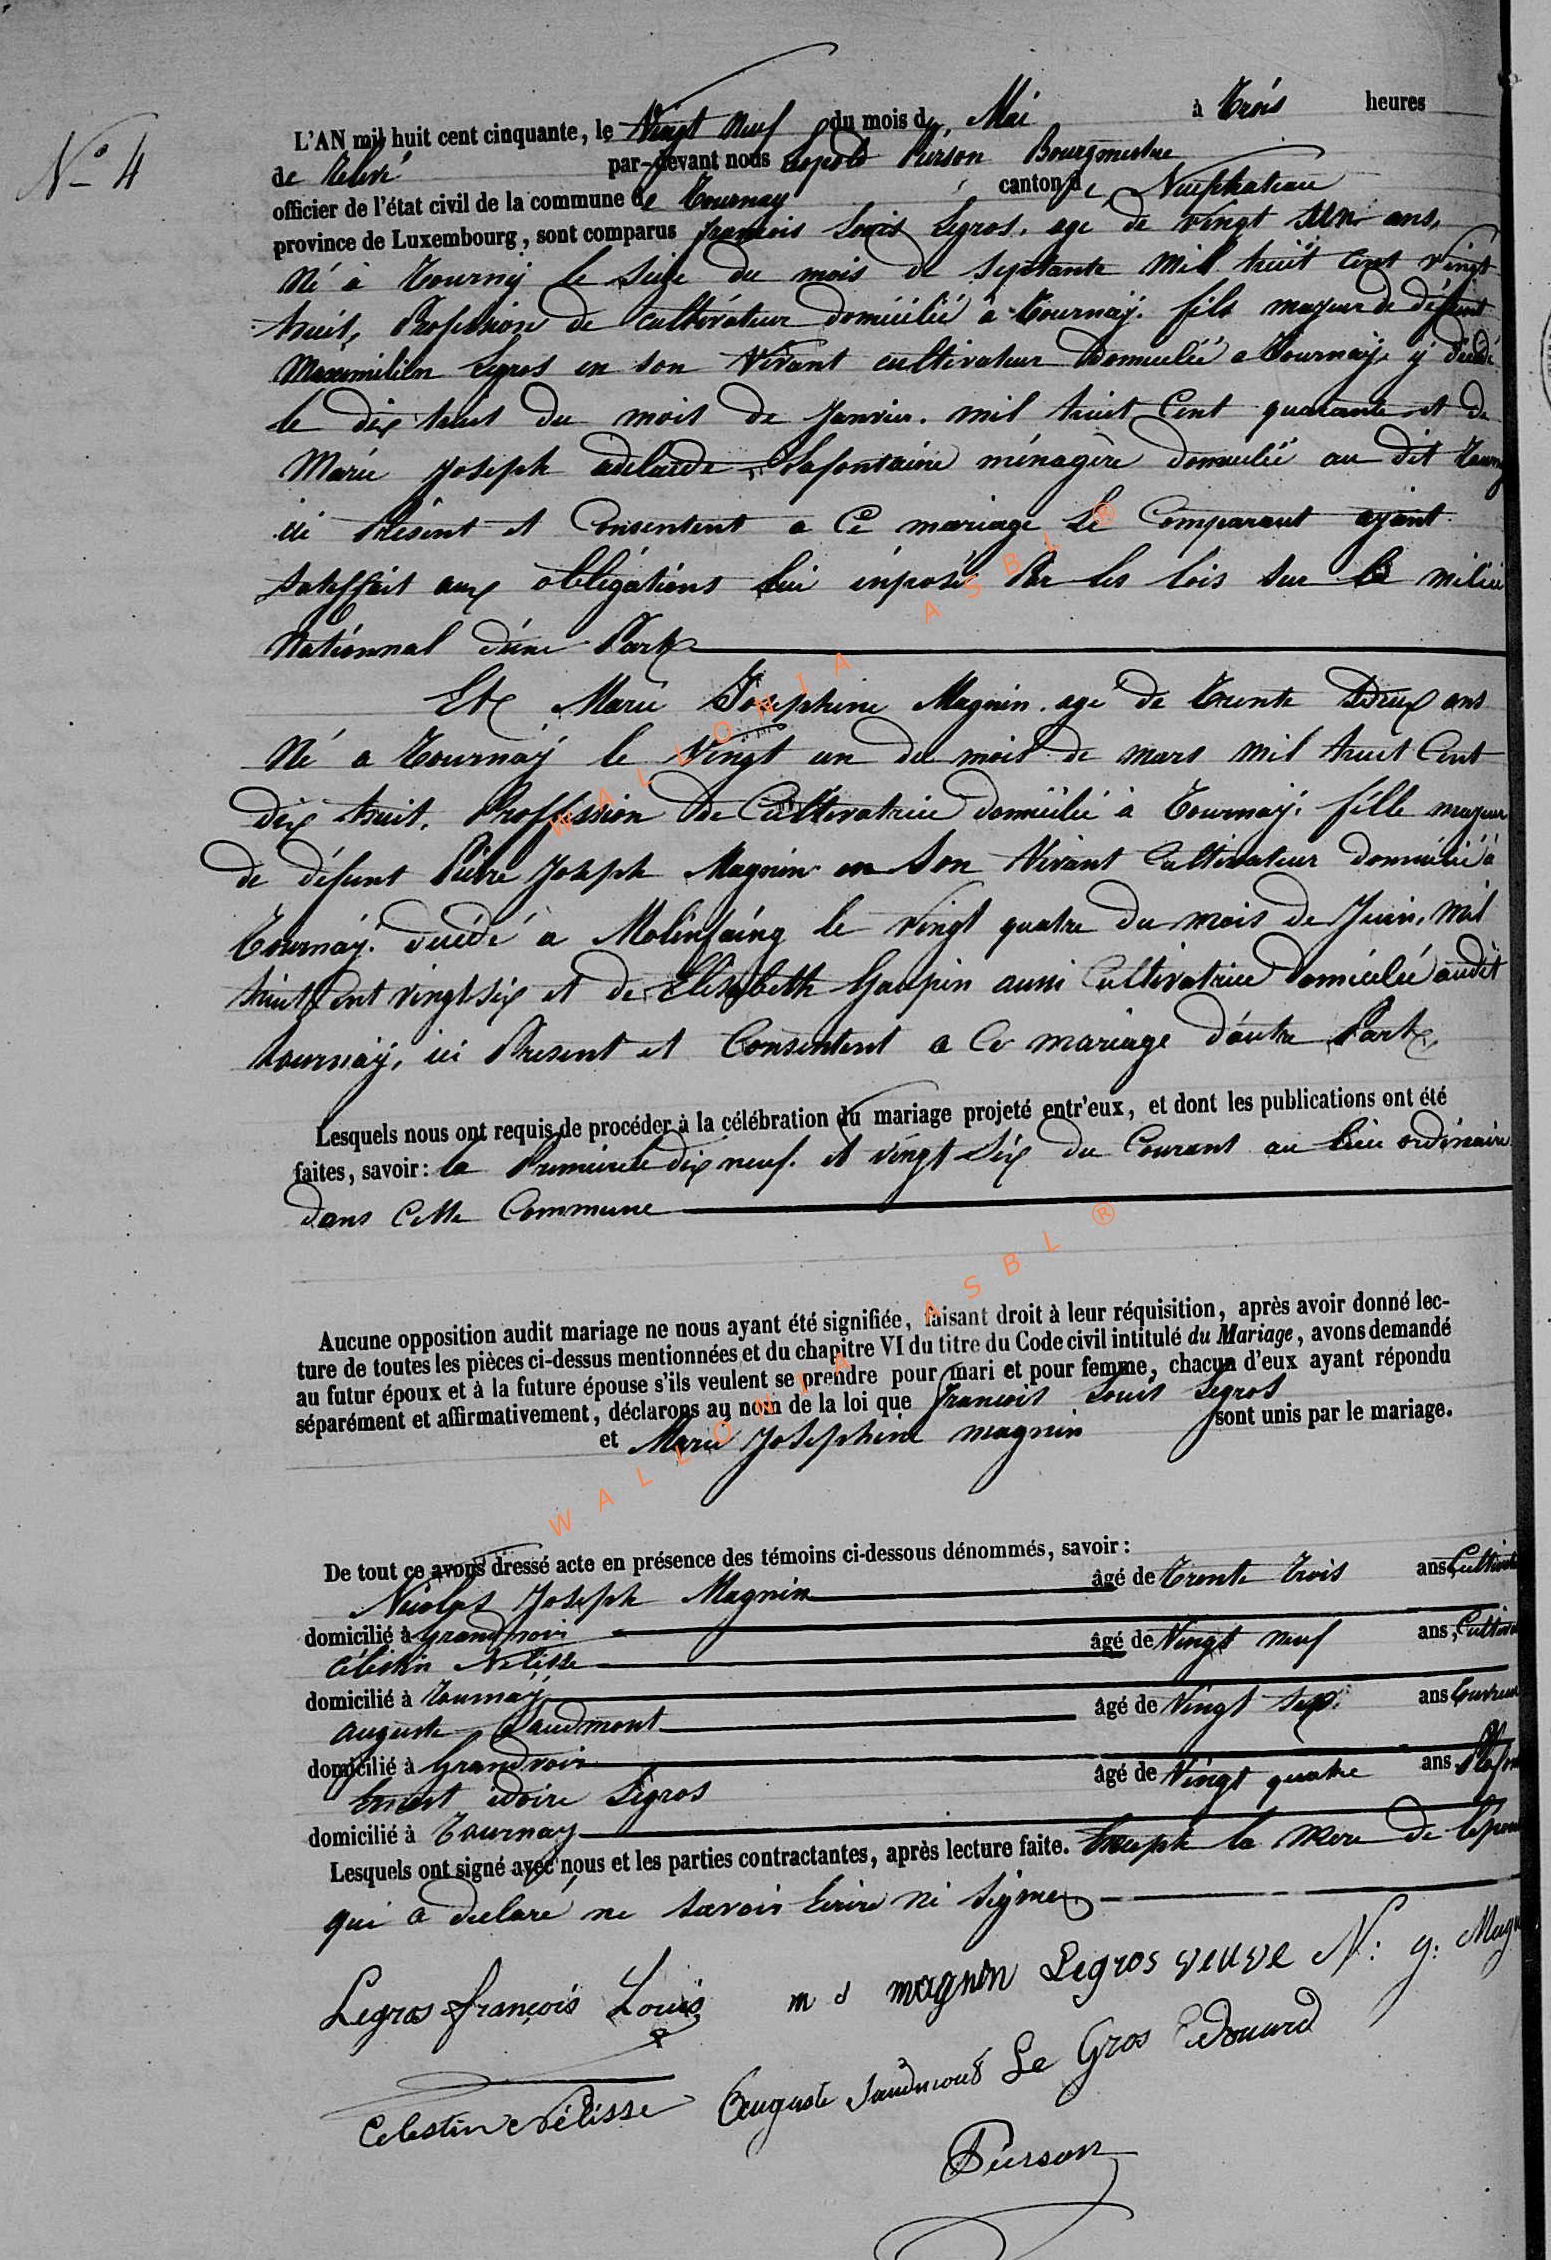 N° 4
L'AN mil huit cent cinquante, le Vingt neuf du mois de Mai à trois heures
de Relevé par-devant nous Léopold Pierson Bourgmestre
officier de l'état civil de la commune de Tournay canton de Neufchateau
province de Luxembourg, sont comparus francois Louis Legros. agé de vingt un ans,
Né à Tournay le seize du mois de septante mil huit cent vingt
huit, Profession de cultivateur domicilié à Tournay. fils majeur de défunt
Maximilien Legros en son Vivant cultivateur domicilié a Tournay y décédé
le dix huit du mois de Janvier. mil huit Cent quarante et de
Marie Joseph adelaide Lafontaine ménagère domiciliée au dit Tournay
ici Présent et Consentent a Ce mariage Le Comparant ayant
satisffait aux obligations lui inposés Par les lois sur la milice
Nationnal d'une Part
Et Marie Josephine Magnin. agé de trente Deux ans
Né a Tournay le Vingt un du mois de mars mil huit Cent
dix huit. Proffession de Cultivatrice domicilié à Tournay. fille majeur
de défunt Pierre Joseph Magnin en Son Vivant Cultivateur domicilié à
Tournay. décédé a Molinfaing le vingt quatre du mois de Juin. mil
huit Cent vingt six et de Elisabeth Gaupin aussi Cultivatrice domicilié audit
tournay, ici Present et Consentent a Ce mariage d'autre Part
Lesquels nous ont requis de procéder à la célébration du mariage projeté entr'eux, et dont les publications ont été
faites, savoir: la Premiere le dix neuf. et vingt Six du Courant au lieu ordinaire
dans Cette Commune
Aucune opposition audit mariage ne nous ayant été signifiée, faisant droit à leur réquisition, après avoir donné lec-
ture de toutes les pièces ci-dessus mentionnées et du chapitre VI du titre du Code civil intitulé du Mariage, avons demandé
au futur époux et à la future épouse s'ils veulent se prendre pour mari et pour femme, chacun d'eux ayant répondu
séparément et affirmativement, déclarons au nom de la loi que francois Louis Legros
et Marie Josephine magnin sont unis par le mariage.
De tout ce avons dressé acte en présence des témoins ci-dessous dénommés, savoir:
Nicolas Joseph Magnin âgé de trente trois ans Cultivate
domicilié à Grandvoir
Célestin Nelisse âgé de Vingt neuf ans, Cultiva
domicilié à Tournay
auguste Jaudmont âgé de Vingt sep. ans Couvreur
domicilié à Grandvoir
Ernest Legros âgé de Vingt quatre ans
domicilié à Tournay
Lesquels ont signé avec nous et les parties contractantes, après lecture faite. Excepté la Mere de l'epouse
qui a declaré ne savoir Ecrire ni signer
Legros françois Louis m J magnin Legros veuve N: J: Magn
Celestin Nélisse Auguste Jaudmont Le Gros Edouard
Pierson
WALLONIA ASBL ®
WALLONIA ASBL ®